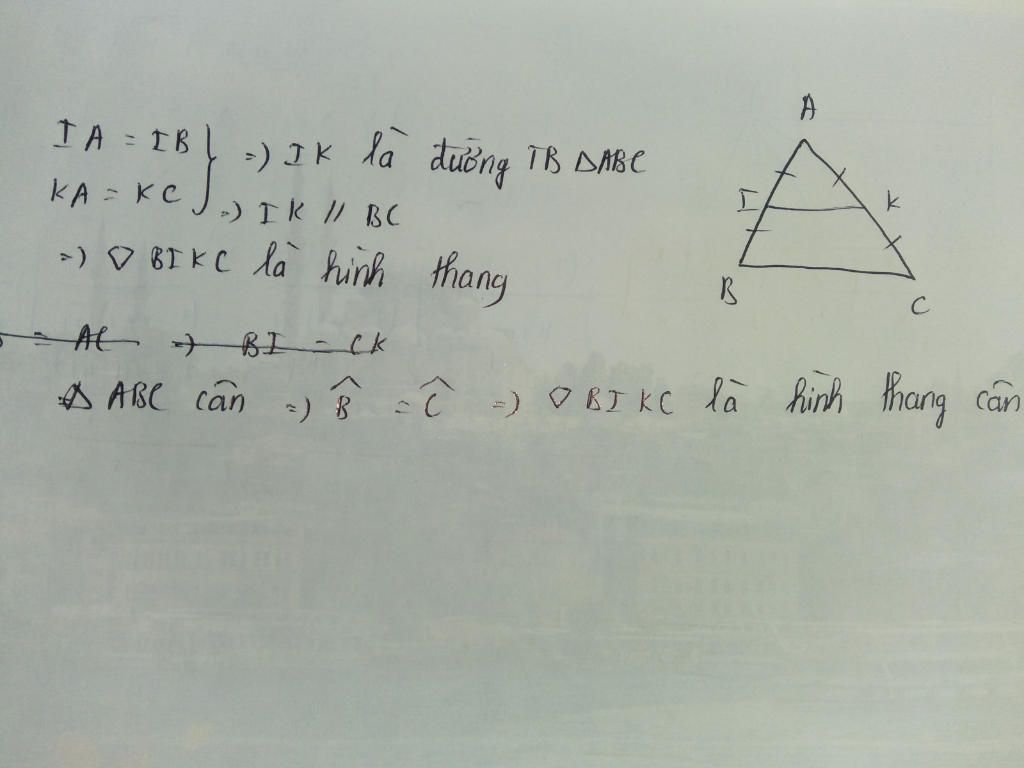 IA = IB } => IK là đường TB ΔABC
KA = KC } => IK // BC
=> ◇ BIKC là hình thang
= AC => BI = CK
Δ ABC cân => B̂ = Ĉ => ◇ BIKC là hình thang cân
A
I
K
B
C